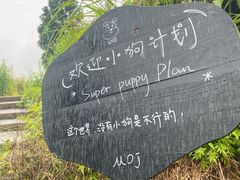 欢迎小狗计划
* Super puppy Plan *
这世界，没有小狗是不行的！
MOJ